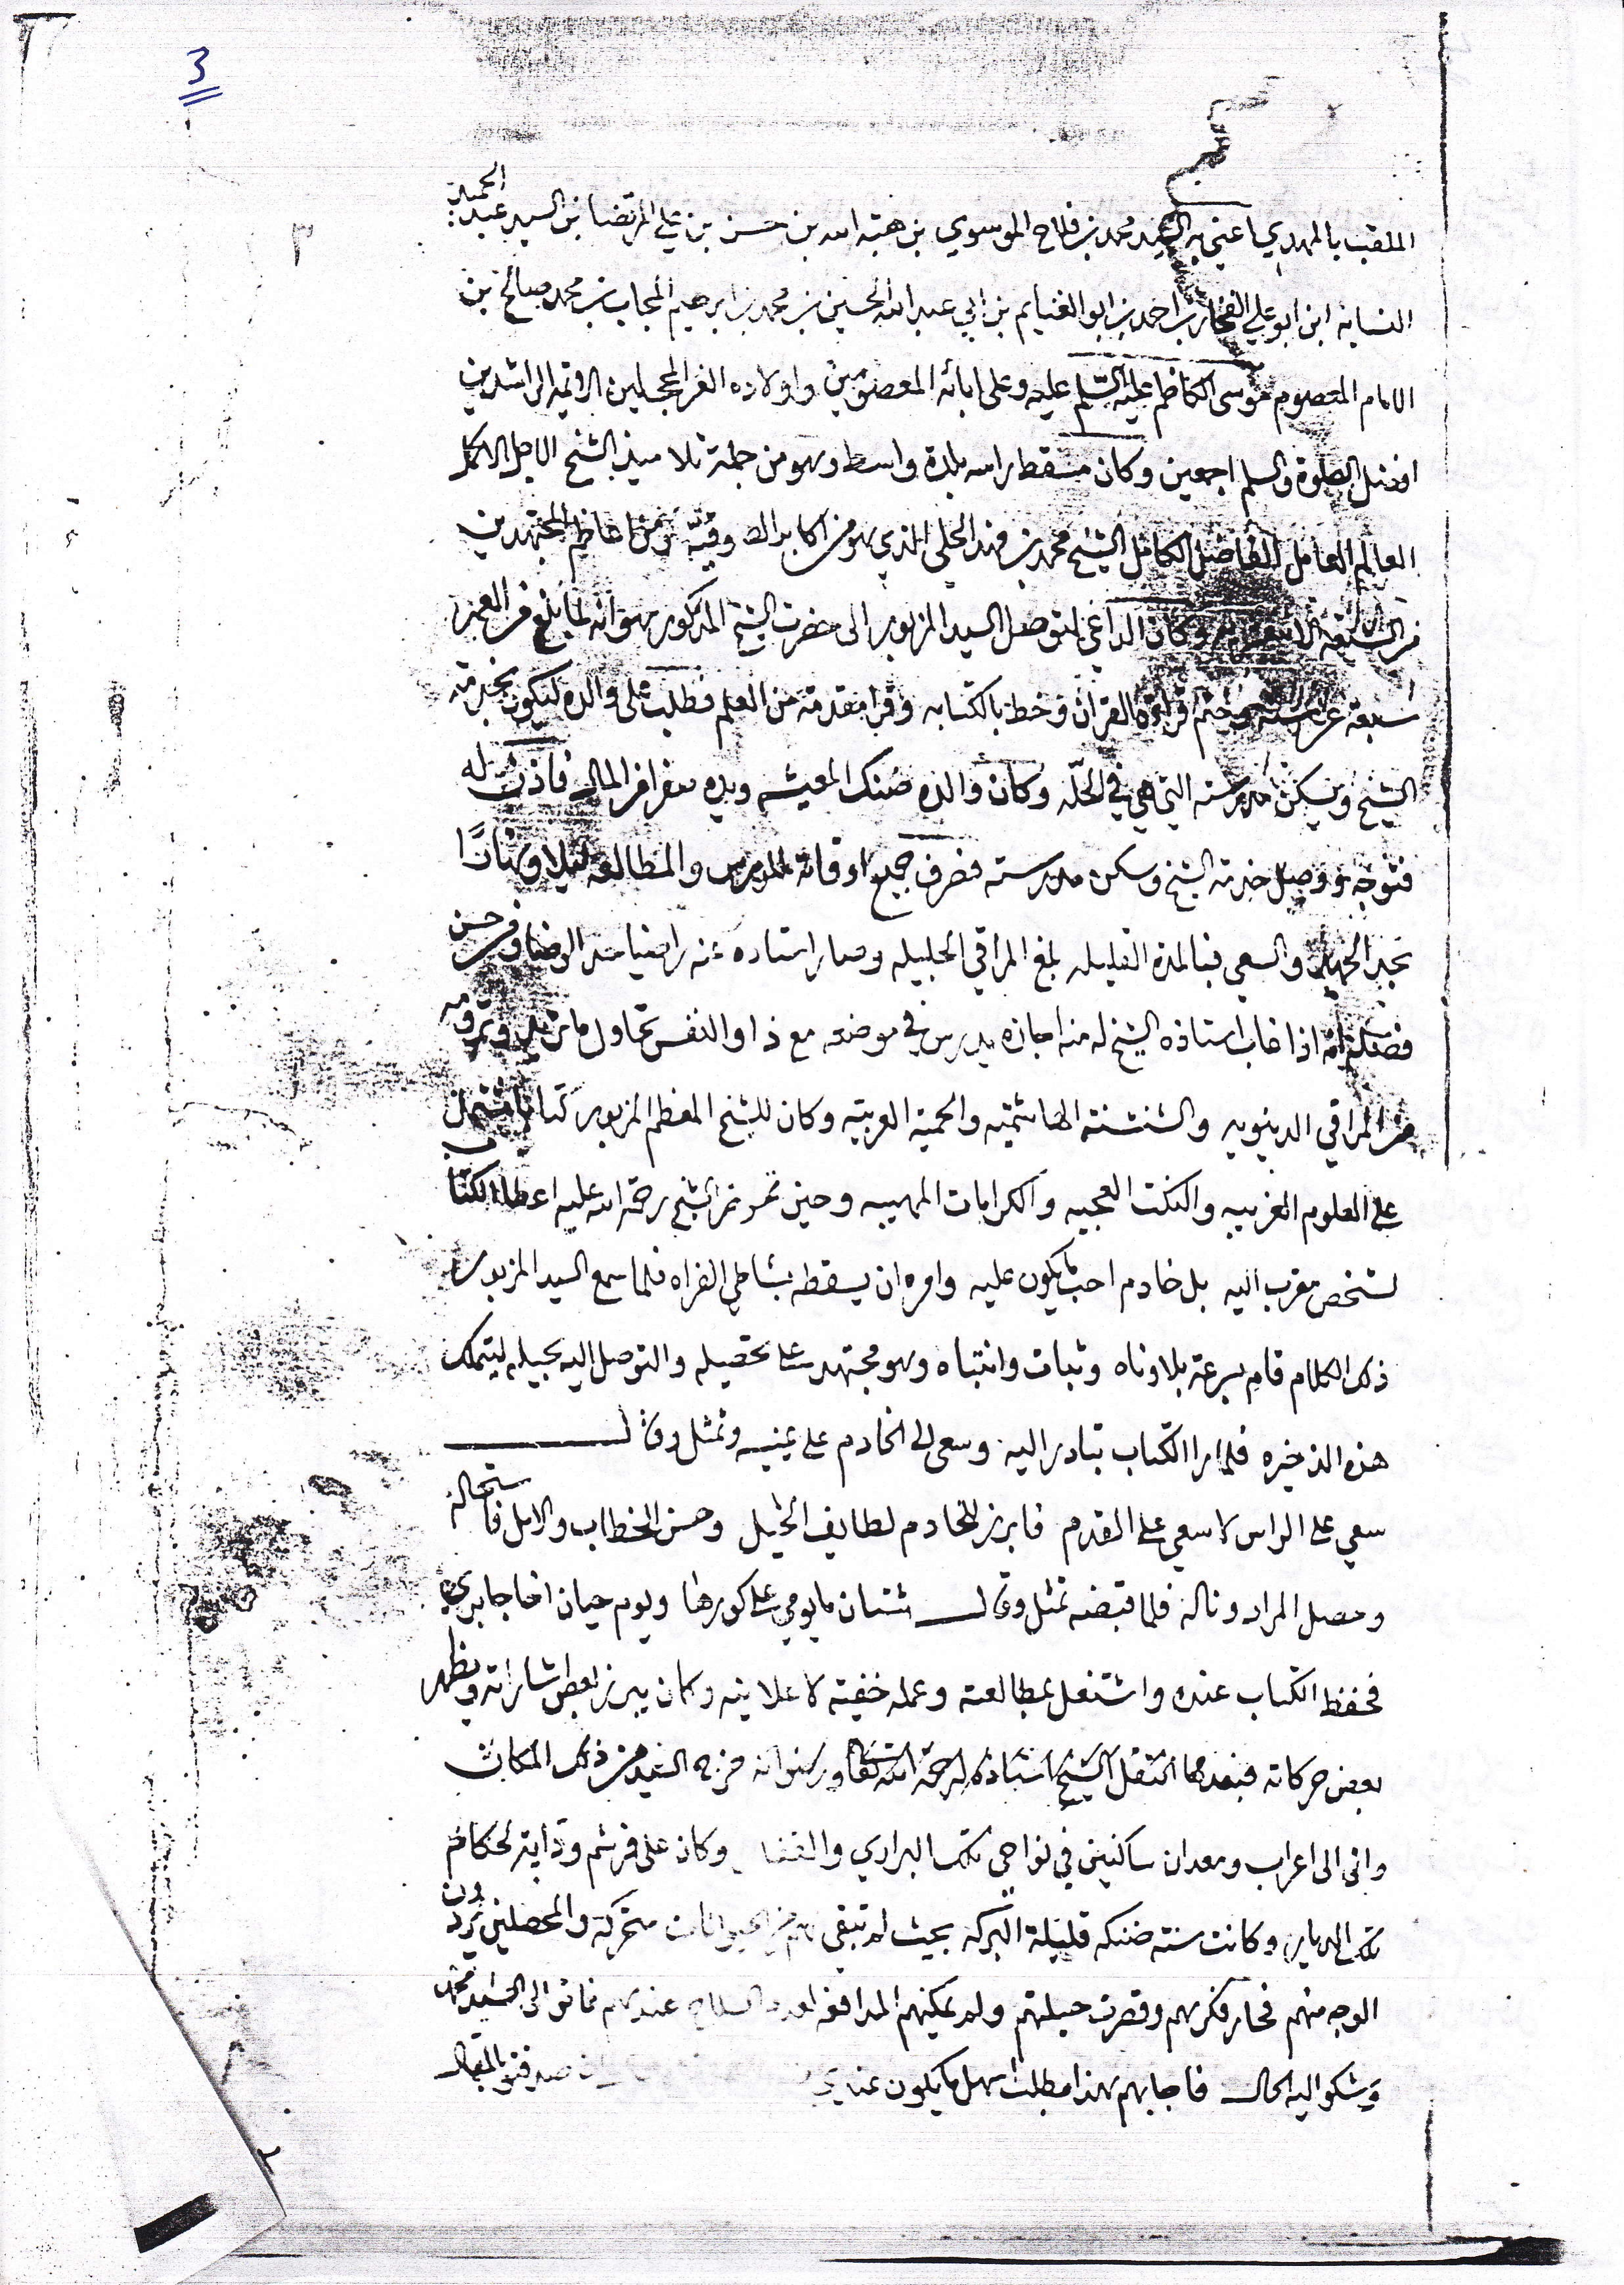 3
٣
الملقب بالمهدي اعني به السيد محمد بن فلاح الموسوي بن هبته الله بن حسن بن علي المرتضا بن السيد عبد الحميد
النسابه ابن ابو علي الفخار بن احمد بن ابو الغنايم بن ابي عبد الله الحسين بن محمد بن ابرهيم المجاب بن محمد صالح بن
الامام المعصوم موسى الكاظم عليه السلم عليه وعلى ابائه المعصومين واولاده الغر المجلين الائمه الراشدين
افضل الصلوة والسلم اجمعين وكان مسقط راسه بلدة واسط وهو من جملة تلاميذ الشيخ الاجل الاكمل
العالم العامل الفاضل الكامل الشيخ محمد بن فهد الحلي الذي هو من اكابر وقته ومن اعاظم المجتهدين
من الشيعة وكان الداعي لتوصل السيد المزبور الى حضرت الشيخ المذكور هو انه لما بلغ من العمر
سبعة عشر سنه وختم قرائة القران وخط بالكتابه وقرا مقدمة من العلم فطلب على والده ليكون بخدمته
الشيخ ويسكن مدرسته التي هي في الحلّه وكان والده ضنك المعيشه ويده صفرا من المال فاذن له
فتوجه ووصل خدمة الشيخ وسكن مدرسته فصرف جميع اوقاته للدرس والمطالعه ليلا ونهارًا
بجد الجهد والسعي فبالمدة القليله بلغ المراقي الجليله وصار استاده عنه راضيا الرضا ومن حسن
فضله انه اذا غاب استاذه الشيخ له منه اجازه يدرس في موضعه مع ذا والنفس تحاول ما تريد وترومه
من المراقي الدينويه والشنشنة الهاشميه والحمية العربيه وكان للشيخ المعظم المزبور كتابا مشتمل
على العلوم الغريبه والنكت العجيبه والكرامات المهيبه وحين الشيخ رحمة الله عليه اعطا الكتاب
لشخص مقرب اليه بل خادم احب ما يكون عليه وامره ان يسقطه بشاطي الفراه فلما سمع السيد المزبور
ذلك الكلام قام بسرعة بلا وناه وثبات وانتباه وهو مجتهد على تحصيله والتوصل اليه بحيله ليتملك
هذه الذخيره فلما را الكتاب تبادر اليه وسعى الى الخادم على عينيه وتمثل وقال
سعي على الراس لا سعي على القدم فابرز للخادم لطايف الحيل وحسن الخطاب والامل فاستحاله
وحصل المراد وناله فلما قبضه تمثل وقال شتان ما يومي على كورها ويوم حيان اخا جابري
فحفظ الكتاب عنده واشتغل بمطالعته وعمله خفية لا علانيه وكان يبرز بعض اشاراته ويظهر
بعض حركاته فبعدما انتقل الشيخ استاذه له رحمة الله تعالى ورضوانه خرج السيد من ذلك المكان
واتى الى اعراب ومعدان ساكنين في نواحي تلك البراري والقفار وكان على فرشم وذابته لحكام
تلك الديار وكانت سنته ضنكه قليلة البركه بحيث لم تبقى لهم من الحيوانات متحركة والمحصلين يردون
الوجه منهم فحار فكرهم وقصرت حيلتهم ولم يمكنهم المدافعه لعدم السلاح عندهم فاتوا الى السيد محمد
وشكوا اليه الحال فاجابهم بهذا مطلب سهل ما يكون عندي صدقتو بالمقال